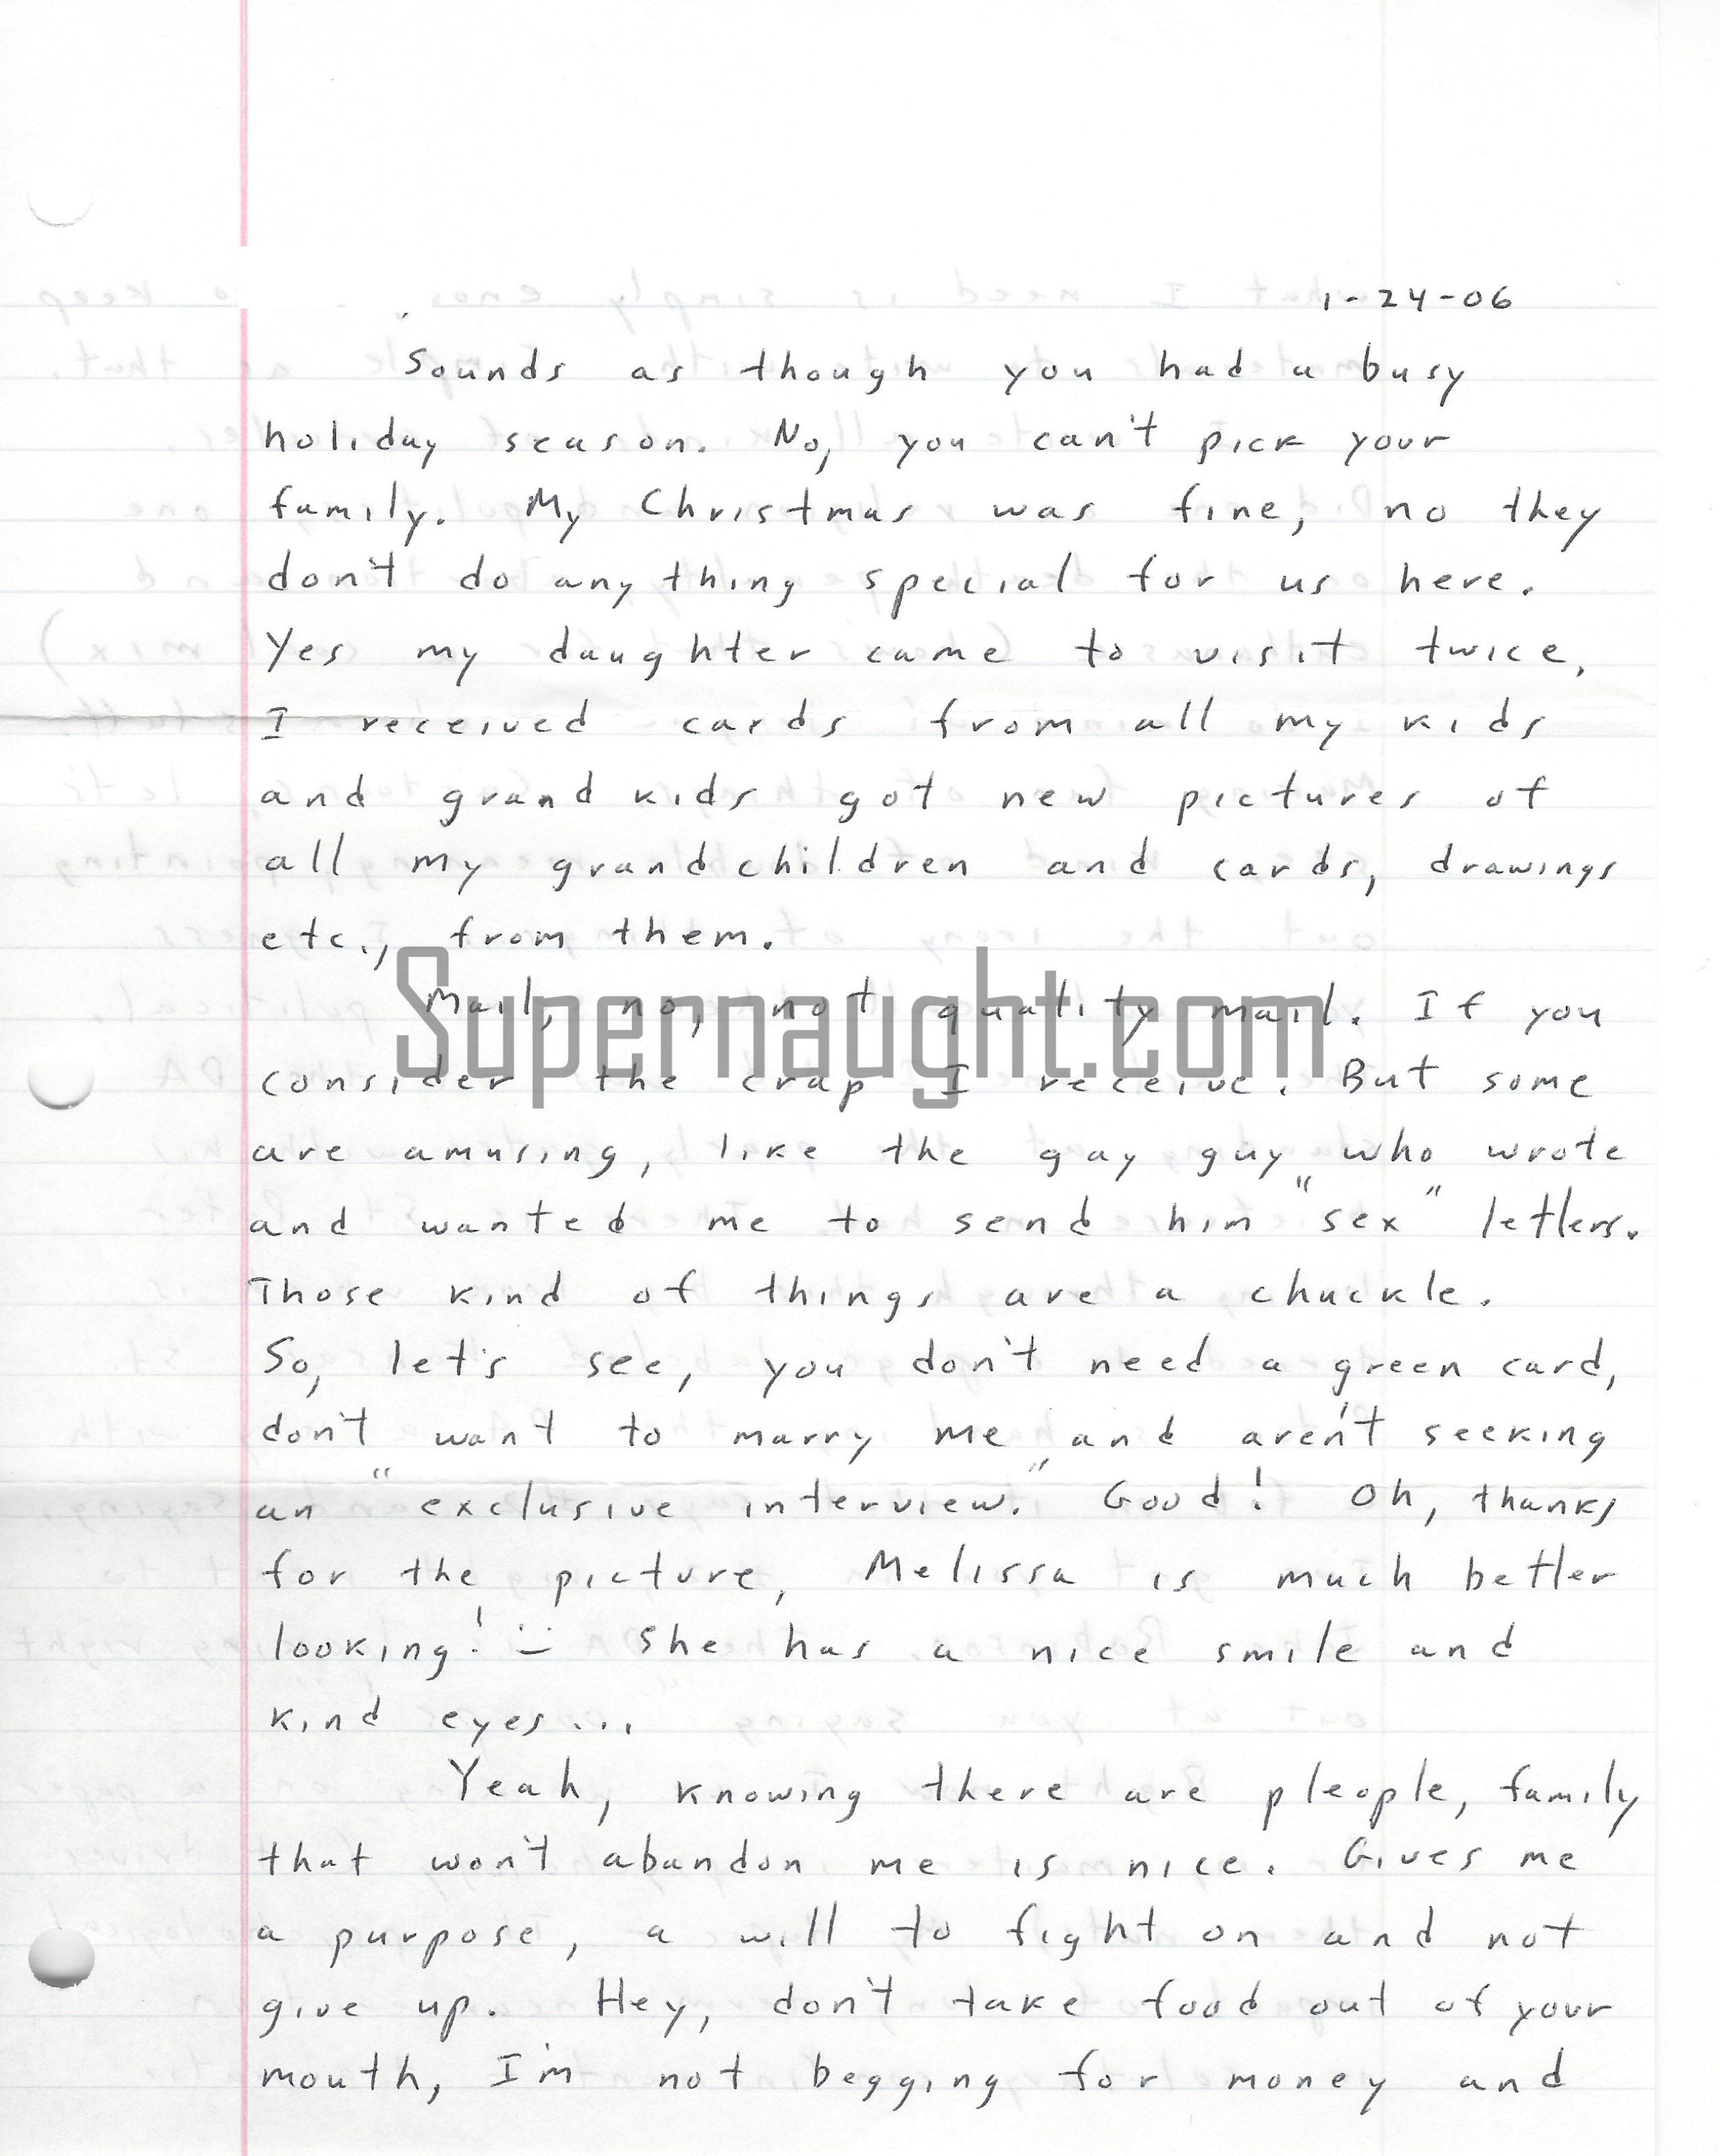 1-24-06
Sounds as though you had a busy
holiday season. No, you can't pick your
family. My Christmas was fine, no they
don't do anything special for us here.
Yes my daughter came to visit twice,
I received cards from all my kids
and grand kids got new pictures of
all my grandchildren and cards, drawings
etc., from them.
Mail, no, not quality mail. If you
Supernaught.com
consider the crap I receive. But some
are amusing, like the gay guy who wrote
and wanted me to send him "sex" letters.
Those kind of things are a chuckle.
So, let's see, you don't need a green card,
don't want to marry me and aren't seeking
an "exclusive interview." Good! Oh, thanks
for the picture, Melissa is much better
looking! :) She has a nice smile and
kind eyes...
Yeah, knowing there are pleople, family
that won't abandon me is nice. Gives me
a purpose, a will to fight on and not
give up. Hey, don't take food out of your
mouth, I'm not begging for money and